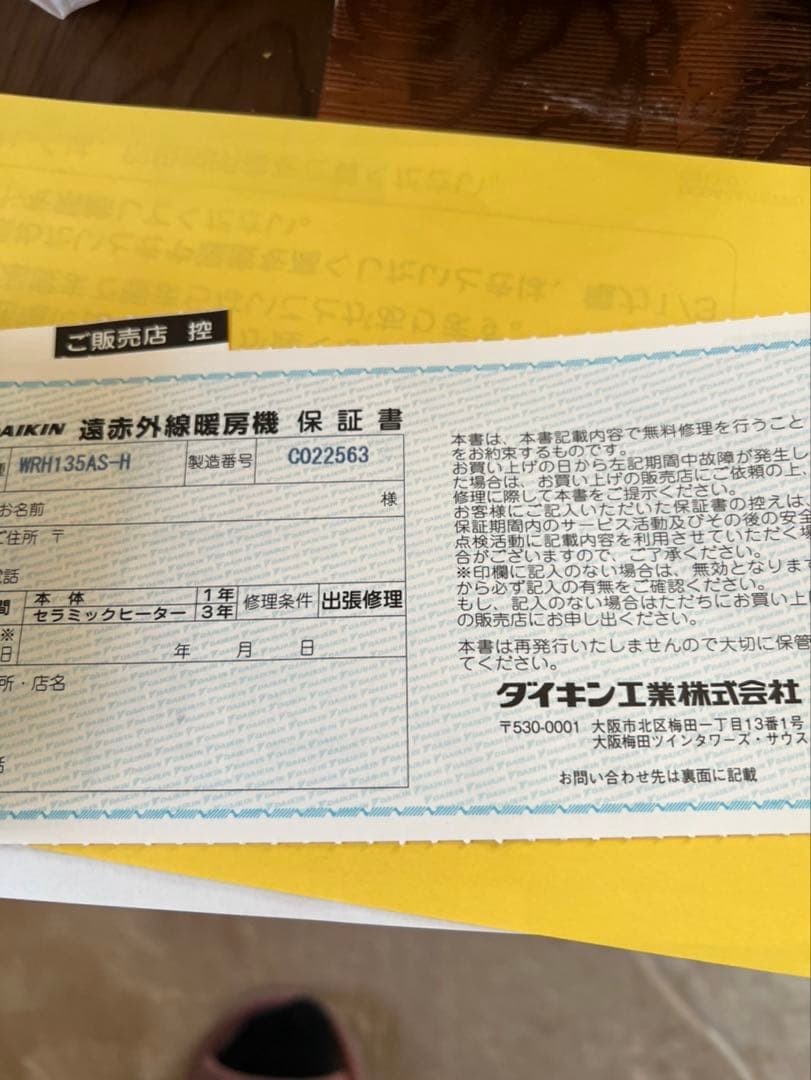 ご販売店 控
DAIKIN 遠赤外線暖房機 保証書
WRH135AS-H 製造番号 C022563
お名前 様
ご住所 〒
電話
本体 1年
セラミックヒーター 3年
修理条件 出張修理
※
日 年 月 日
所・店名
本書は、本書記載内容で無料修理を行うこと
をお約束するものです。
お買い上げの日から左記期間中故障が発生し
た場合は、お買い上げの販売店にご依頼の上、
修理に際して本書をご提示ください。
お客様にご記入いただいた保証書の控えは、
保証期間内のサービス活動及びその後の安全
点検活動に記載内容を利用させていただく場
合がございますので、ご了承ください。
※印欄に記入のない場合は、無効となります
から必ず記入の有無をご確認ください。
もし、記入のない場合はただちにお買い上げ
の販売店にお申し出ください。
本書は再発行いたしませんので大切に保管
てください。
ダイキン工業株式会社
〒530-0001 大阪市北区梅田一丁目13番1号
大阪梅田ツインタワーズ・サウス
お問い合わせ先は裏面に記載